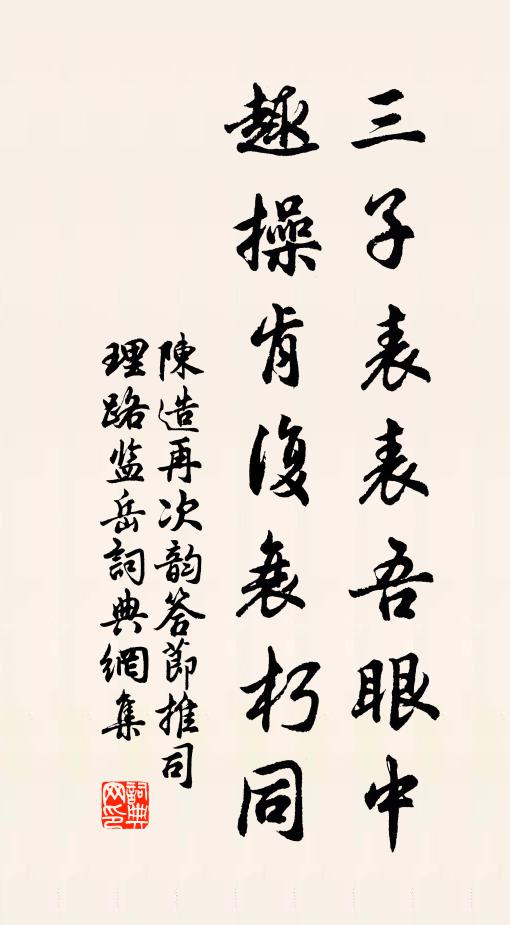 三子表表吾眼中
趣操肯復衰朽同
陳造再次韵答節推司
理路監岳詞典網集
詞典网印